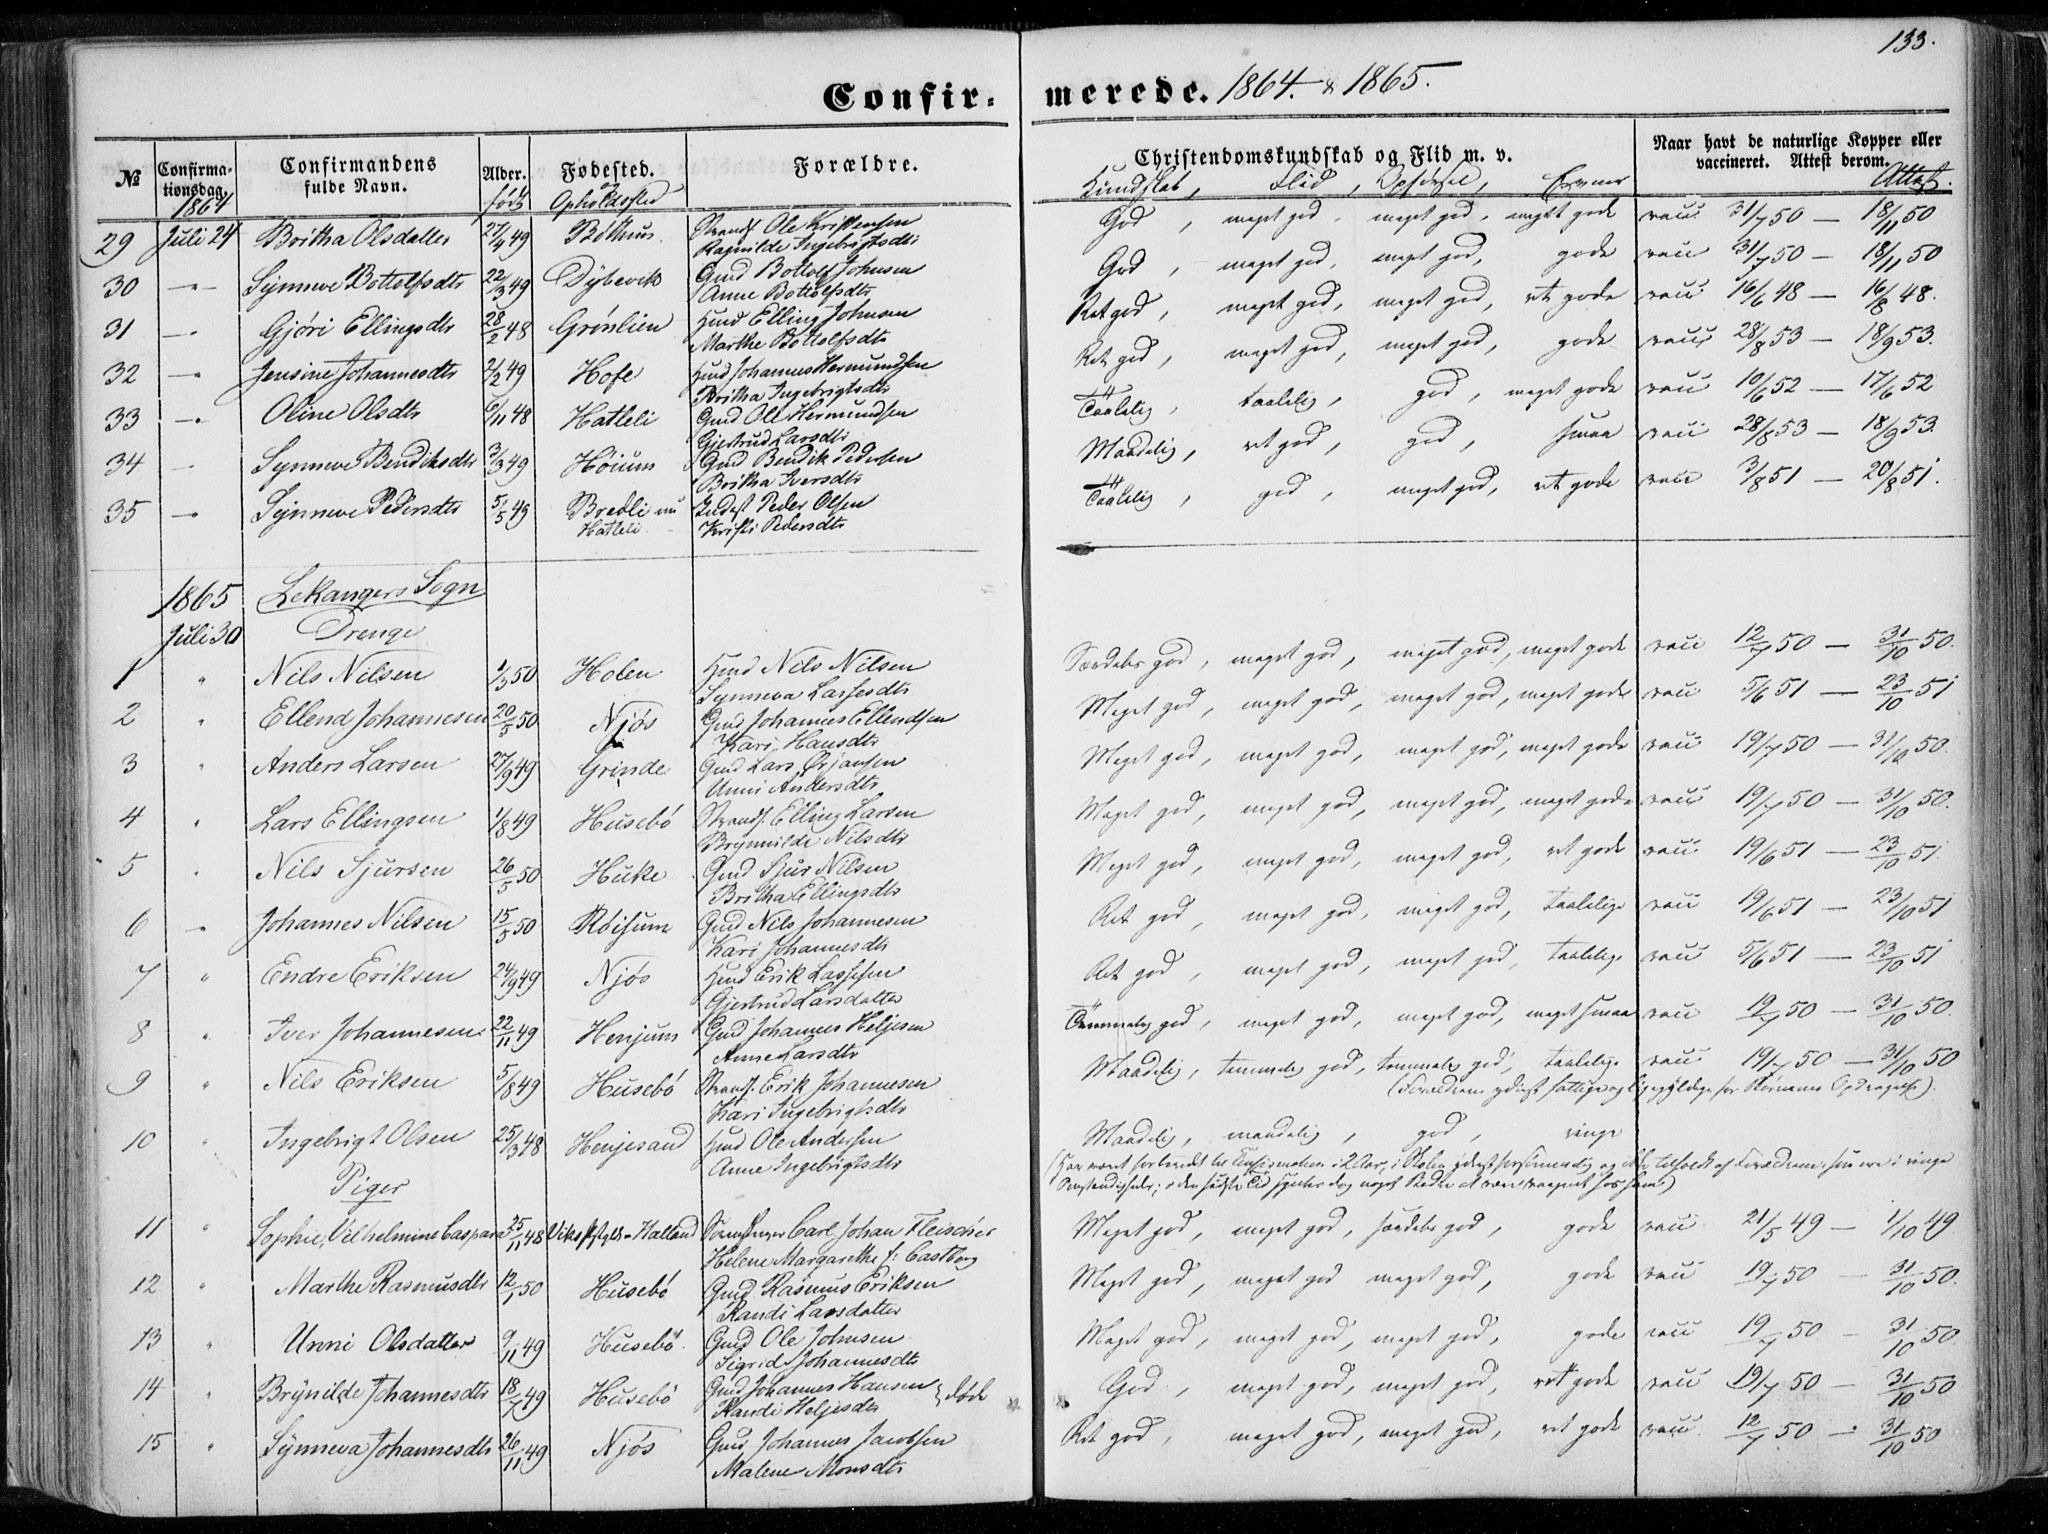 133.
Confir- merede. 1864. & 1865.
№ Confirma-tionsdag. Confirmandens fulde Navn. Alder. Fødested. Forældre. Christendomskundskab og Flid m. v. Naar havt de naturlige Kopper eller vaccineret. Attest derom.
1864 født og Opholdssted Kundskab, Flid, Opførsel, Evner Attest.
29 Juli 24 Britha Olsdatter 27/9 49 Bøthun Strands. Ole Kristensen God, meget god, meget god, meget gode vacc 31/7 50 — 18/11 50
Ragnilde Ingebrigtsdtr
30 —"— Synneve Bottolfsdtr 22/3 49 Dybevik Gmd Bottolf Johnsen God, meget god, meget god, gode vacc 31/7 50 — 18/11 50
Anne Bottolfsdtr
31 —" Gjøri Ellingsdtr 28/2 48 Grønlien Hmd Elling Johnsen Ret god, meget god, meget god, ret gode vacc 16/6 48 — 16/8 48.
Marthe Bottolfsdtr
32 —" Jensine Johannesdtr 2/2 49 Hofe Hmd Johannes Hermundsen Ret god, meget god, meget god, gode vacc 28/8 53 — 18/9 53.
Britha Ingebrigtsdtr
33 —" Oline Olsdtr 6/11 48 Hatleli Gmd Ole Hermundsen Taalelig, taalelig, god, meget gode vacc 10/6 52 — 17/6 52
Gjertrud Larsdtr
34 — Synneve Bendiksdtr 3/3 49 Høium Gmd Bendik Pedersen Maadelig, ret god, god, smaa vacc 28/8 53 — 18/9 53.
Britha Iversdtr
35 —" Synneve Pedersdtr 5/5 49 Bredli nu Hatleli Indest Peder Olsen Taalelig, god, meget god, ret gode vacc 3/8 51 — 20/8 51.
Kristi Pedersdtr
1865 Lekangers Sogn
Juli 30 Drenge
1 " Nils Nilsen 1/3 50 Holen Hmd Nils Nilsen Særdeles god, meget god, meget god, meget gode vacc 12/7 50 — 31/10 50.
Synneva Lassesdtr
2 " Ellend Johannesen 20/5 50 Njøs Gmd Johannes Ellendsen Meget god, meget god, meget god, meget gode vacc 5/6 51 — 23/10 51
Kari Hansdtr
3 " Anders Larsen 27/9 49 Grinde Gmd Lars Ørjansen Meget god, meget god, meget god, meget gode vacc 19/7 50 — 31/10 50.
Unni Andersdtr
4 " Lars Ellingsen 1/8 49 Husebø Strands. Elling Larsen Meget god, meget god, meget god, meget gode vacc 19/7 50 — 31/10 50.
Brynnilde Nilsdtr
5 " Nils Sjursen 26/5 50 Huke Gmd Sjur Nilsen Meget god, meget god, meget god, ret gode vacc 19/6 51 — 23/10 51
Britha Ellingsdtr
6 " Johannes Nilsen 15/5 50 Røisum Gmd Nils Johannesen Ret god, meget god, meget god, taalelige vacc 19/6 51 — 23/10 51
Kari Johannesdtr
7 " Endre Eriksen 24/9 49 Njøs Hmd Erik Lassesen Ret god, meget god, meget god, taalelige vacc 5/6 51 — 23/10 51
Gjertrud Larsdatter
8 " Iver Johannesen 22/11 49 Henjum Gmd Johannes Heljesen Temmelig god, meget god, meget god, meget smaa vacc 19/7 50 — 31/10 50.
Anne Larsdtr
9 " Nils Eriksen 5/8 49 Husebø Strands. Erik Johannesen Maadelig, temmelig god, temmelig god, taalelige vacc 19/7 50 — 31/10 50
Kari Ingebrigtsdtr (Forældrene yderst fattige og ligegyldige for Børnenes Opdragelse).
10 " Ingebrigt Olsen 25/3 48 Henjesand Hmd Ole Andersen Maadelig, maadelig, god, ringe
Anne Ingebrigtsdtr (Har været forberedt til Confirmation i 2 Aar, i Skolen yderst forsømmelig og ikke tilholdt af Forældrene, som ere i ringe
Piger Omstændigheder; i den sidste Tid synes dog noget Bedre at være vaagnet hos ham)
11 " Sophie Vilhelmine Caspara 25/11 48 Viks Pgld - Halland Carl Johan Fleischer Meget god, meget god, særdeles god, gode vacc 21/5 49 — 1/10 49
Helene Margarethe f: Castberg
12 " Marthe Rasmusdtr 12/1 50 Husebø Gmd Rasmus Eriksen Meget god, meget god meget god, gode vacc 19/7 50 — 31/10 50.
Randi Larsdatter
13 " Unni Olsdatter 9/11 49 Husebø Gmd Ole Johnsen Meget god, meget god, meget god, gode vacc 19/7 50 — 31/10 50.
Sigrid Johannesdtr
14 " Brynilde Johannesdtr 18/7 49 Husebø Gmd Johannes Hansen } døde God, meget god, meget god, ret gode vacc 19/7 50 — 31/10 50
Randi Heljesdtr
15 " Synneva Johannesdtr 26/11 49 Njøs Gmd Johannes Jacobsen Ret god, meget god, meget god, ret gode vacc 12/7 50 — 31/10 50
Malene Monsdtr